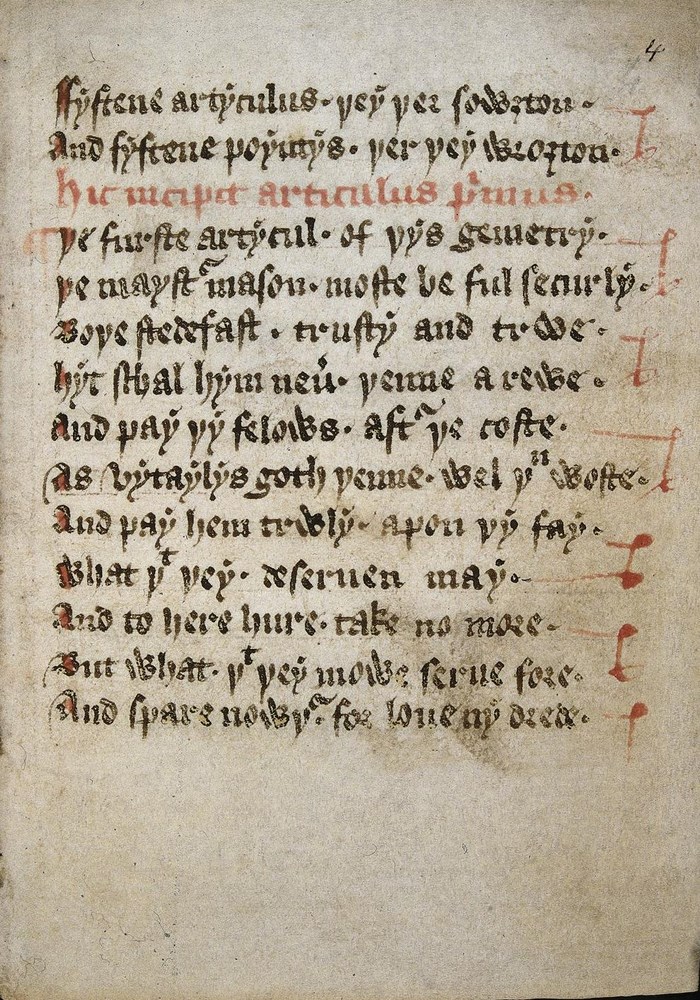 4
Ffyftene artyculus · þey þer sowȝton ·
And fyftene poyntys · þer þey wroȝton ·
Hic incipit articulus p̾imus ·
¶ þe furste artycul · of þys gemetry ·
þe mayst͛ mason · moste be ful securly ·
Boþe stedefast · trusty and trwe ·
hyt schal hym neu͛ · þenne arewe ·
And pay þy felows · aft͛ þe coste ·
As vytaylys goth þenne · wel þᵘ woste ·
And pay hem trwly · apon þy fay ·
What þᵗ þey · deseruen may ·
And to here hure · take no more ·
But what · þᵗ þey mowe serue fore ·
And spare nowþ͛ for loue ny drede ·